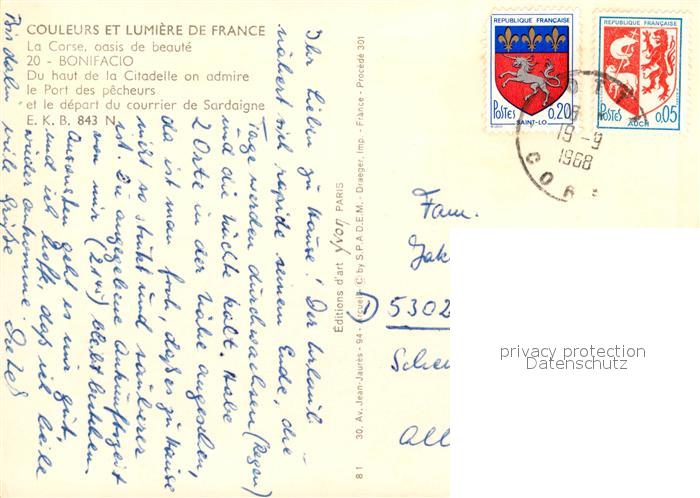 COULEURS ET LUMIÈRE DE FRANCE
La Corse, oasis de beauté
20 - BONIFACIO
Du haut de la Citadelle on admire
le Port des pêcheurs
et le départ du courrier de Sardaigne
E. K. B. 843 N
Ihr Lieben zu Hause! Der Urlaub
nähert sich rapide seinem Ende, die
Tage werden durchwachsen (Regen)
und die Nächte kalt. Habe
2 Orte in der Nähe angesehen,
da ist man froh, daß es zu Hause
nicht so stinkt und sauberer
ist. Die angegebene Ankunftszeit
von mir (21) bleibt bestehen.
Ansonsten geht es mir gut,
und ich hoffe, daß ich heile
wieder ankomme.
Bis dahin viele Grüße
Éditions d'art YVON PARIS
30, Av. Jean-Jaurès - 94 - Arcueil - C by S.P.A.D.E.M. - Draeger, Imp. - France - Procédé 301
81
REPUBLIQUE FRANÇAISE
POSTES 0,20
SAINT-LO
REPUBLIQUE FRANÇAISE
POSTES 0,05
AUCH
19-9
1968
COR
Fam.
Jak
D 5302
Sche
All
privacy protection
Datenschutz